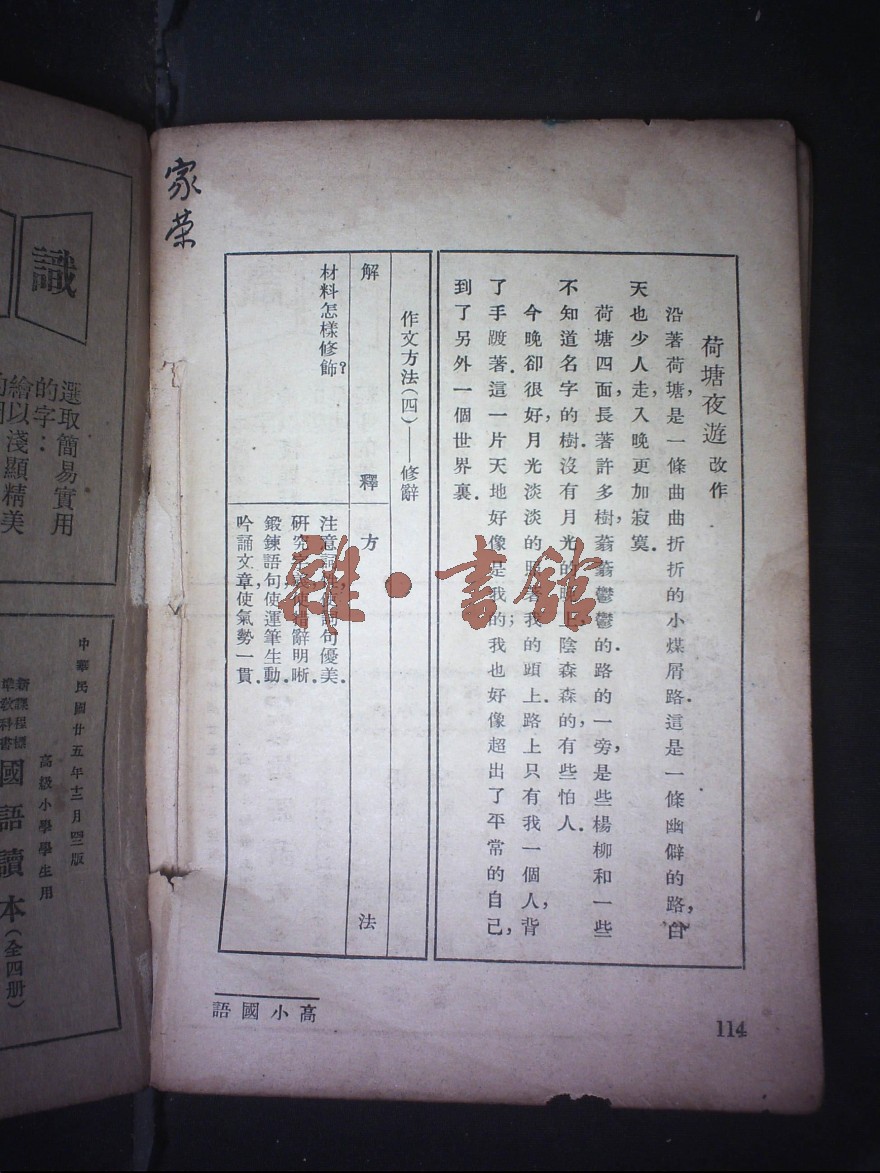 荷塘夜遊 改作
沿著荷塘，是一條曲曲折折的小煤屑路．這是一條幽僻的路，白
天也少人走，入晚更加寂寞．
荷塘四面，長著許多樹，蓊蓊鬱鬱的．路的一旁，是些楊柳，和一些
不知道名字的樹．沒有月光的晚上，陰森森的，有些怕人．
今晚卻很好，月光淡淡的照著我的頭上．路上只有我一個人，背
了手踱著．這一片天地好像是我的；我也好像超出了平常的自己，
到了另外一個世界裏．
作文方法(四)——修辭
解釋
方法
材料怎樣修飾？
注意
使詞句優美．
研究
使措辭明晰．
鍛鍊語句，使運筆生動．
吟誦文章，使氣勢一貫．
高小國語
114
家荣
雜·書館
識
選取簡易實用
的字：
繪以淺顯精美
中華民國廿五年十二月四版
高級小學學生用
新課程標
準教科書
國語讀本(全四册)